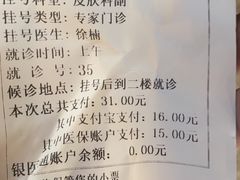 挂号科室: 皮肤科副
挂号类型: 专家门诊
挂号医生: 徐楠
就诊时间: 上午
就 诊 号: 35
候诊地点: 挂号后到二楼就诊
本次总共支付: 31.00元
其中支付宝支付: 16.00元
其中医保账户支付: 15.00元
银医通账户余额: 0.00元